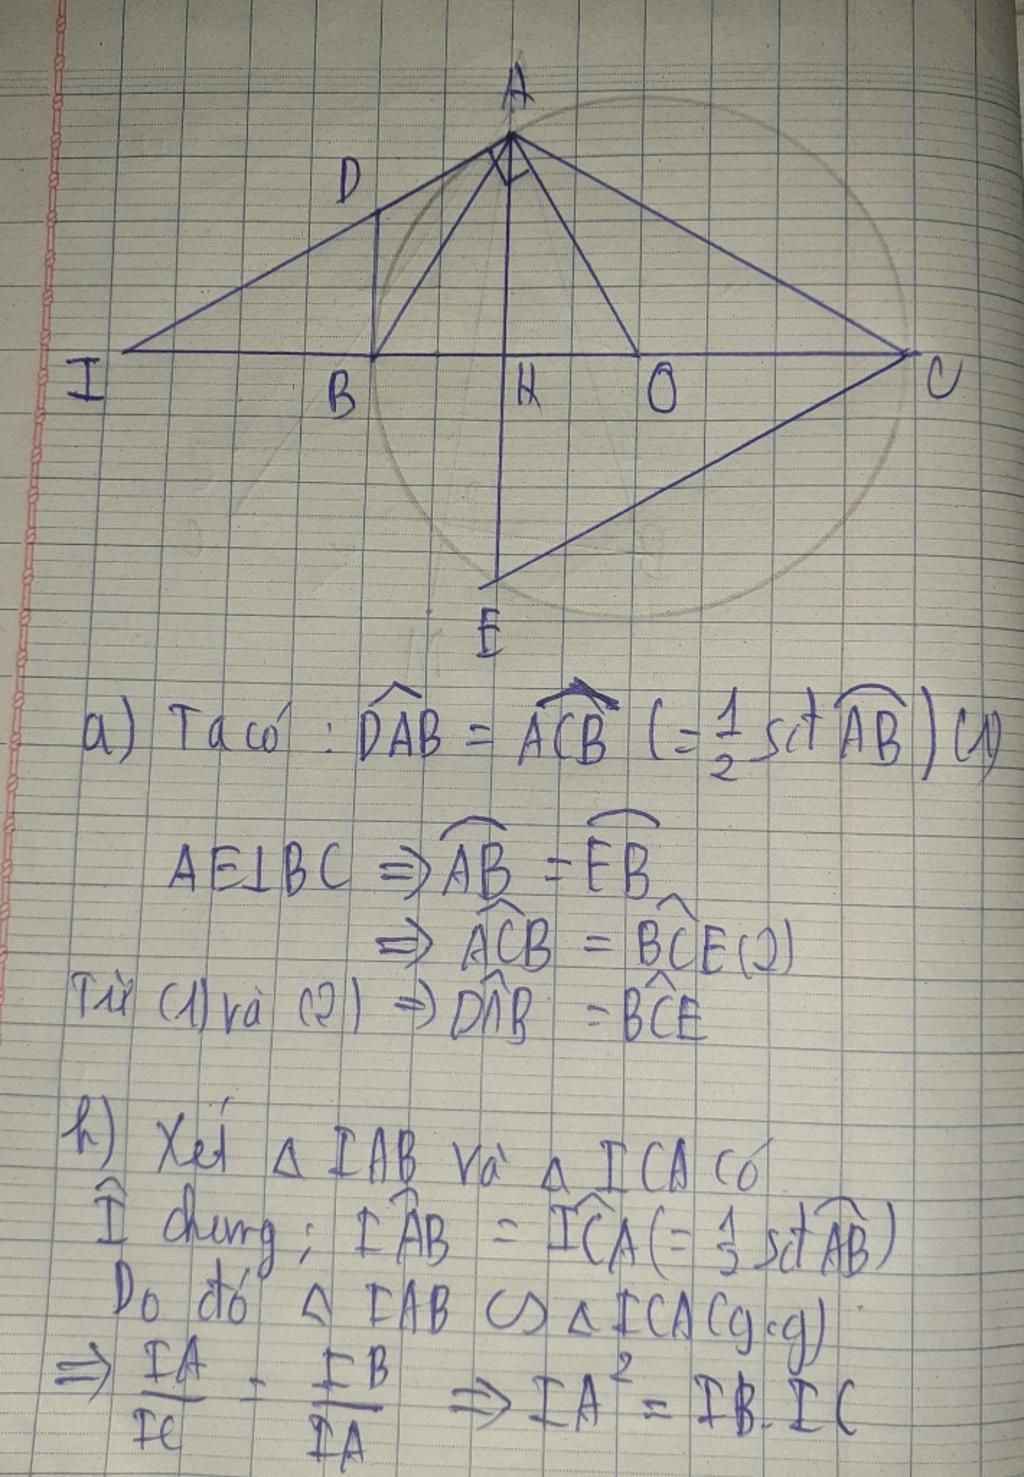 A
D
I
B
H
O
C
E
a) Ta có : DÂB = AĈB (= 1/2 sđ AB) (1)
AE⊥BC ⇒ AB = EB
⇒ AĈB = BĈE (2)
Từ (1) và (2) ⇒ DÂB = BĈE
b) Xét Δ IAB và Δ ICA có
Î chung ; IÂB = IĈA (= 1/2 sđ AB)
Do đó Δ IAB ∽ Δ ICA (g.g)
⇒ IA/IC = IB/IA ⇒ IA² = IB. IC